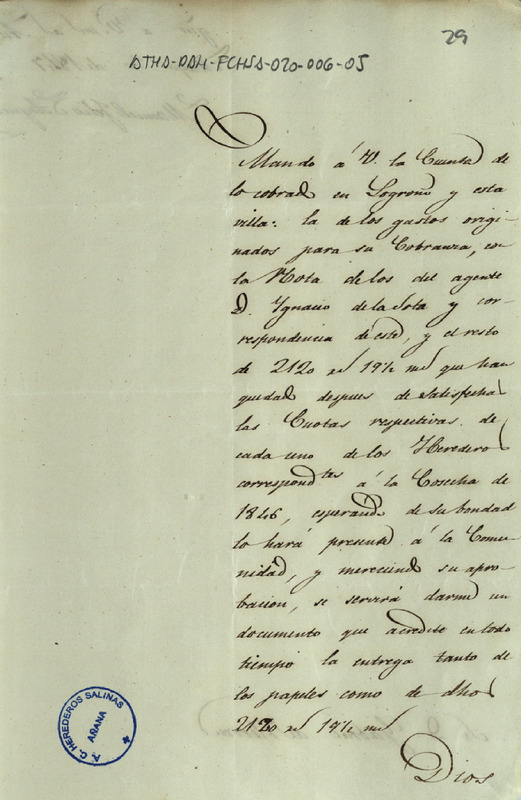 29
ATHA-DAH-FCHSA-020-006-05
Mando á V. la Cuenta de
lo cobrado en Logroño y esta
villa: la de los gastos origi-
nados para su Cobranza, con
la Nota de los del agente
D. Ignacio de la Sota y cor-
respondencia de éste, y el resto
de 2120 rs 19½ ms que han
quedado despues de satisfechas
las Cuotas respectivas de
cada uno de los Herederos
correspondtes á la Cosecha de
1846, esperando de su bondad
lo hará presente á la Comu-
nidad, y mereciendo su apro-
bacion, se servirá darme un
documento que acredite en todo
tiempo la entrega tanto de
los papeles como de dhos
2120 rs 19½ ms
Dios
A. C. HEREDEROS SALINAS
AÑANA